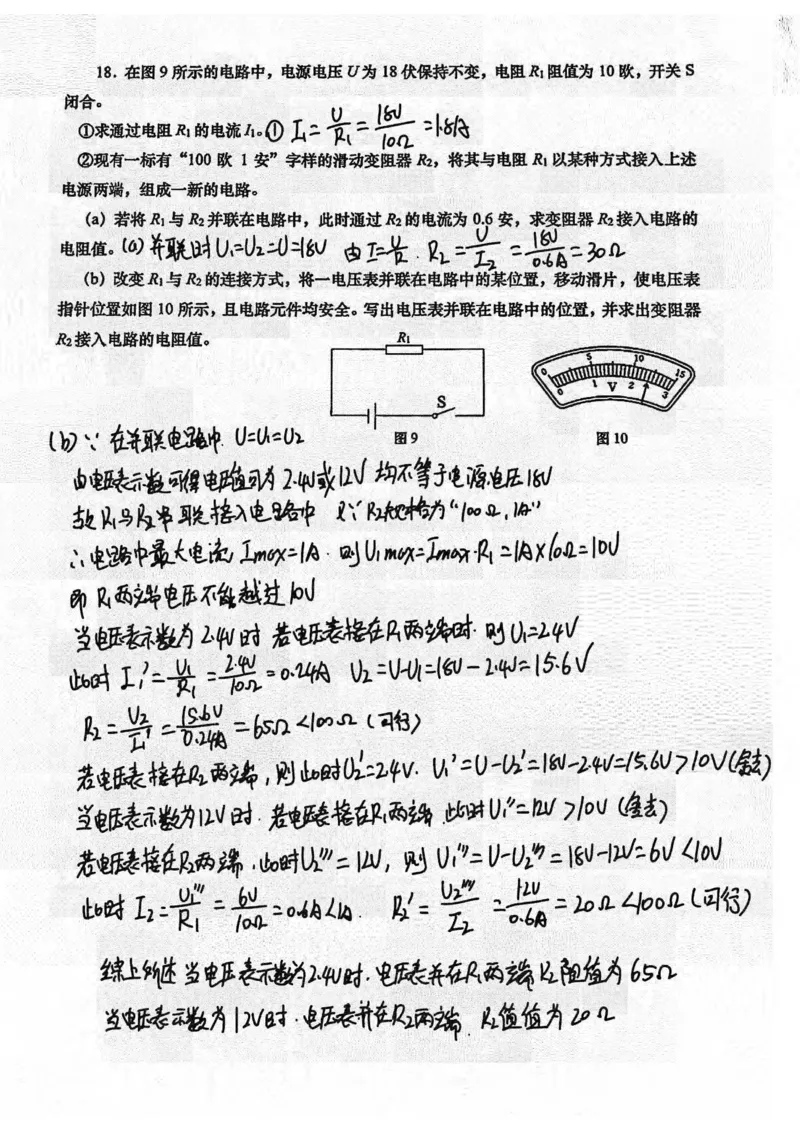 18．在图 9 所示的电路中，电源电压 U 为 18 伏保持不变，电阻 R₁ 阻值为 10 欧，开关 S
闭合。
①求通过电阻 R₁ 的电流 I₁。① I₁ = U/R₁ = 18V/10Ω = 1.8A
②现有一标有“100 欧 1 安”字样的滑动变阻器 R₂，将其与电阻 R₁ 以某种方式接入上述
电源两端，组成一新的电路。
(a) 若将 R₁ 与 R₂ 并联在电路中，此时通过 R₂ 的电流为 0.6 安，求变阻器 R₂ 接入电路的
电阻值。(a) 并联时 U₁=U₂=U=18V 由 I=U/R . R₂ = U/I₂ = 18V/0.6A = 30Ω
(b) 改变 R₁ 与 R₂ 的连接方式，将一电压表并联在电路中的某位置，移动滑片，使电压表
指针位置如图 10 所示，且电路元件均安全。写出电压表并联在电路中的位置，并求出变阻器
R₂ 接入电路的电阻值。
R₁
S
图 9
0 5 10 15
0 1 2 3
V
图 10
(b) ∵ 在并联电路中 U=U₁=U₂
由电压表示数可得电压值可为 2.4V或12V 均不等于电源电压18V
故 R₁与R₂串联接入电路中 又∵ R₂规格为“100Ω，1A”
∴电路中最大电流 Imax=1A . 则 U₁max=Imax·R₁=1A×10Ω=10V
即 R₁两端电压不能越过 10V
当电压表示数为 2.4V时 若电压表接在R₁两端时. 则 U₁=2.4V
此时 I₁' = U₁/R₁ = 2.4V/10Ω = 0.24A U₂=U-U₁=18V-2.4V=15.6V
R₂ = U₂/I₁' = 15.6V/0.24A = 65Ω<100Ω (可行)
若电压表接在R₂两端，则此时U₂'=2.4V. U₁'=U-U₂'=18V-2.4V=15.6V>10V(舍去)
当电压表示数为12V时. 若电压表接在R₁两端 此时U₁''=12V >10V (舍去)
若电压表接在R₂两端.此时U₂'''=12V, 则 U₁'''=U-U₂'''=18V-12V=6V<10V
此时 I₂ = U₁'''/R₁ = 6V/10Ω = 0.6A<1A. R₂' = U₂'''/I₂ = 12V/0.6A = 20Ω<100Ω (可行)
综上所述 当电压表示数为2.4V时. 电压表并在R₁两端 R₂阻值为 65Ω
当电压表示数为 12V时. 电压表并在R₂两端. R₂值值为 20Ω